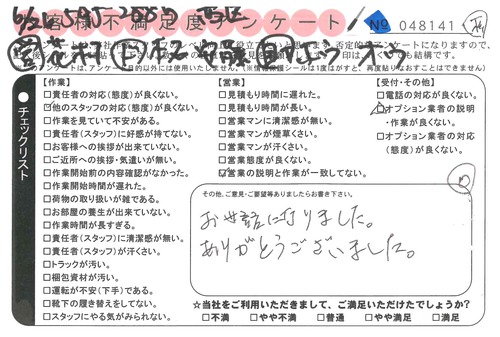 お客様不満足度アンケート № 048141
チェックリスト
【作業】
□責任者の対応(態度)が良くない。
□他のスタッフの対応(態度)が良くない。
□作業を見ていて不安がある。
□責任者(スタッフ)に好感が持てない。
□お客様への挨拶が出来ていない。
□ご近所への挨拶・気遣いが無い。
□作業開始前の内容確認がなかった。
□作業開始時間が遅れた。
□荷物の取り扱いが雑である。
□お部屋の養生が出来ていない。
□作業時間が長すぎる。
□責任者(スタッフ)に清潔感が無い。
□責任者(スタッフ)が汗くさい。
□トラックが汚い。
□梱包資材が汚い。
□運転が不安(下手)である。
□靴下の履き替えをしてない。
□スタッフにやる気がみられない。
【営業】
□見積もり時間に遅れた。
□見積もり時間が長い。
□営業マンに清潔感が無い。
□営業マンが煙草くさい。
□営業マンが汗くさい。
□営業態度が良くない。
☑営業の説明と作業が一致してない。
【受付・その他】
□電話の対応が良くない。
□オプション業者の説明
・作業が良くない。
□オプション業者の対応
(態度)が良くない。
その他、ご意見・ご要望等ありましたらお書き下さい。
お世話になりました。
ありがとうございました。
☆当社をご利用いただきまして、ご満足いただけたでしょうか?
□不満 □やや不満 □普通 □やや満足 □満足